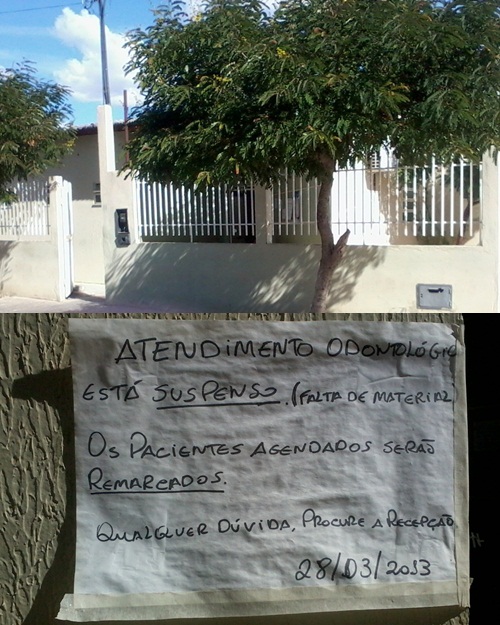 ATENDIMENTO ODONTOLÓGIC
ESTÁ SUSPENSO. (FALTA DE MATERIAL)
OS PACIENTES AGENDADOS SERÃO
REMARCADOS.
QUALQUER DÚVIDA, PROCURE A RECEPÇÃO
28/03/2013